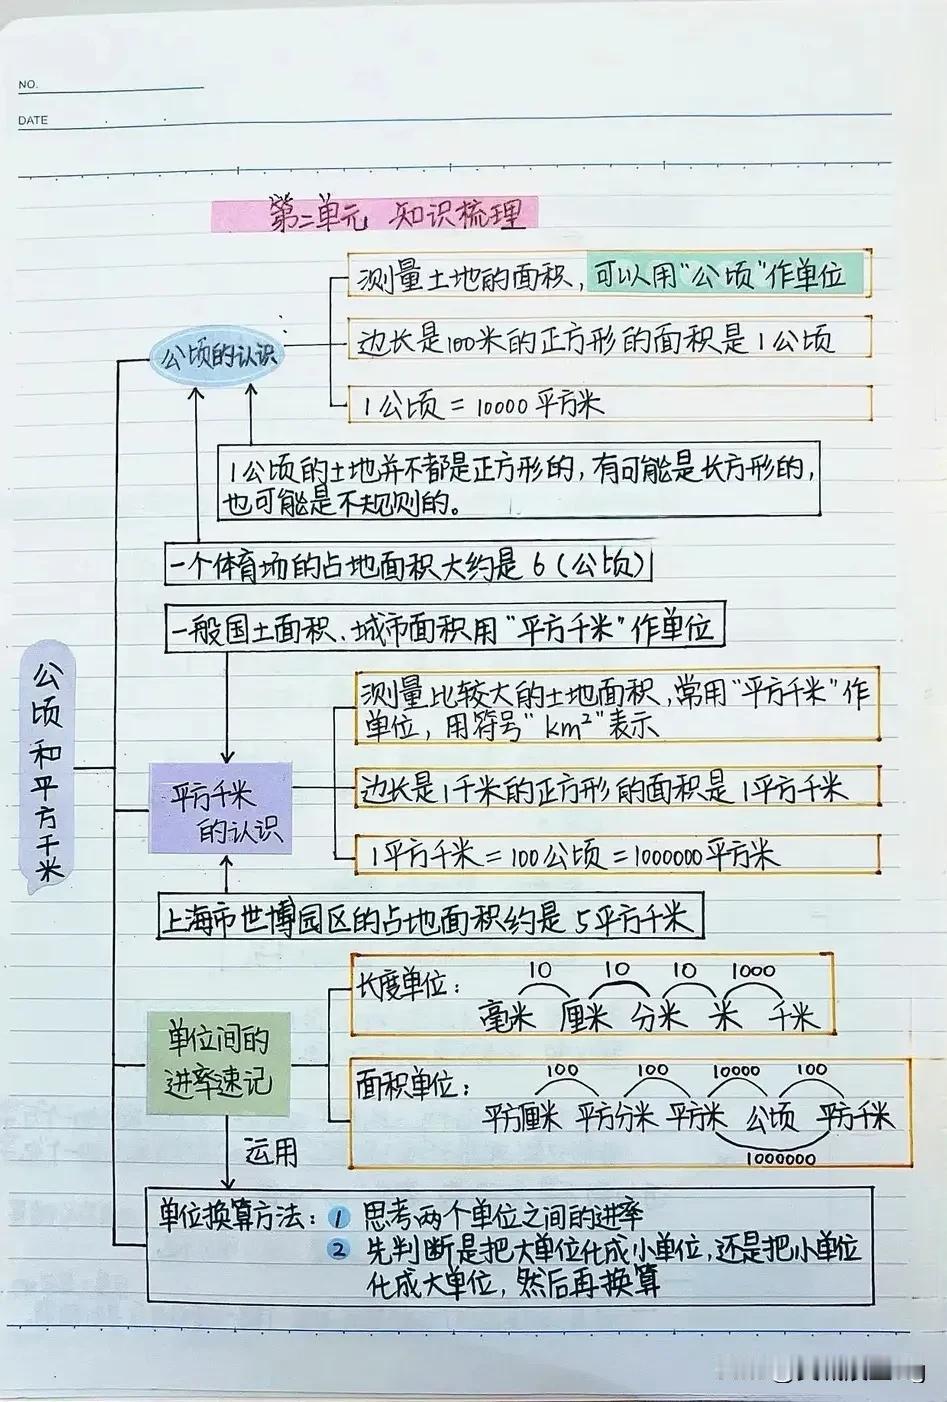 NO.
DATE
第二单元 知识梳理
测量土地的面积，可以用“公顷”作单位
公顷的认识
边长是100米的正方形的面积是1公顷
1公顷=10000平方米
1公顷的土地并不都是正方形的，有可能是长方形的，
也可能是不规则的。
一个体育场的占地面积大约是6（公顷）
一般国土面积、城市面积用“平方千米”作单位
公顷和平方千米
测量比较大的土地面积，常用“平方千米”作
单位，用符号“km²”表示
平方千米
的认识
边长是1千米的正方形的面积是1平方千米
1平方千米=100公顷=1000000平方米
上海市世博园区的占地面积约是5平方千米
长度单位：
10 10 10 1000
毫米 厘米 分米 米 千米
单位间的
进率速记
面积单位：
100 100 10000 100
平方厘米 平方分米 平方米 公顷 平方千米
1000000
运用
单位换算方法：1 思考两个单位之间的进率
2 先判断是把大单位化成小单位，还是把小单位
化成大单位，然后再换算